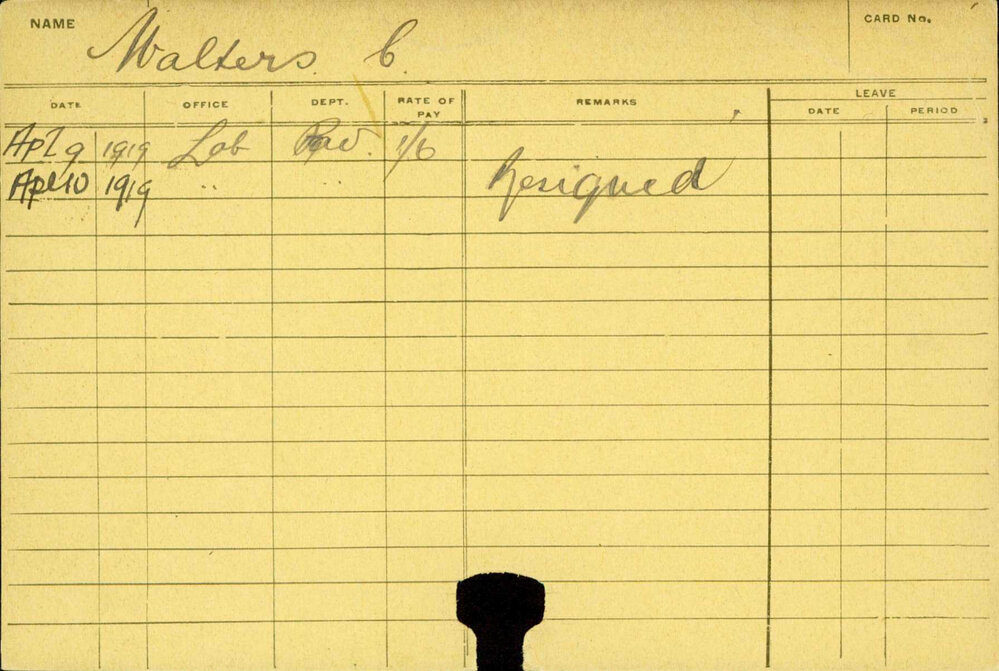 NAME Walters. C. CARD No.
DATE OFFICE DEPT. RATE OF PAY REMARKS LEAVE
DATE PERIOD
Apl 9 1919 Lab 1/6
Apl 10 1919 " " Resigned